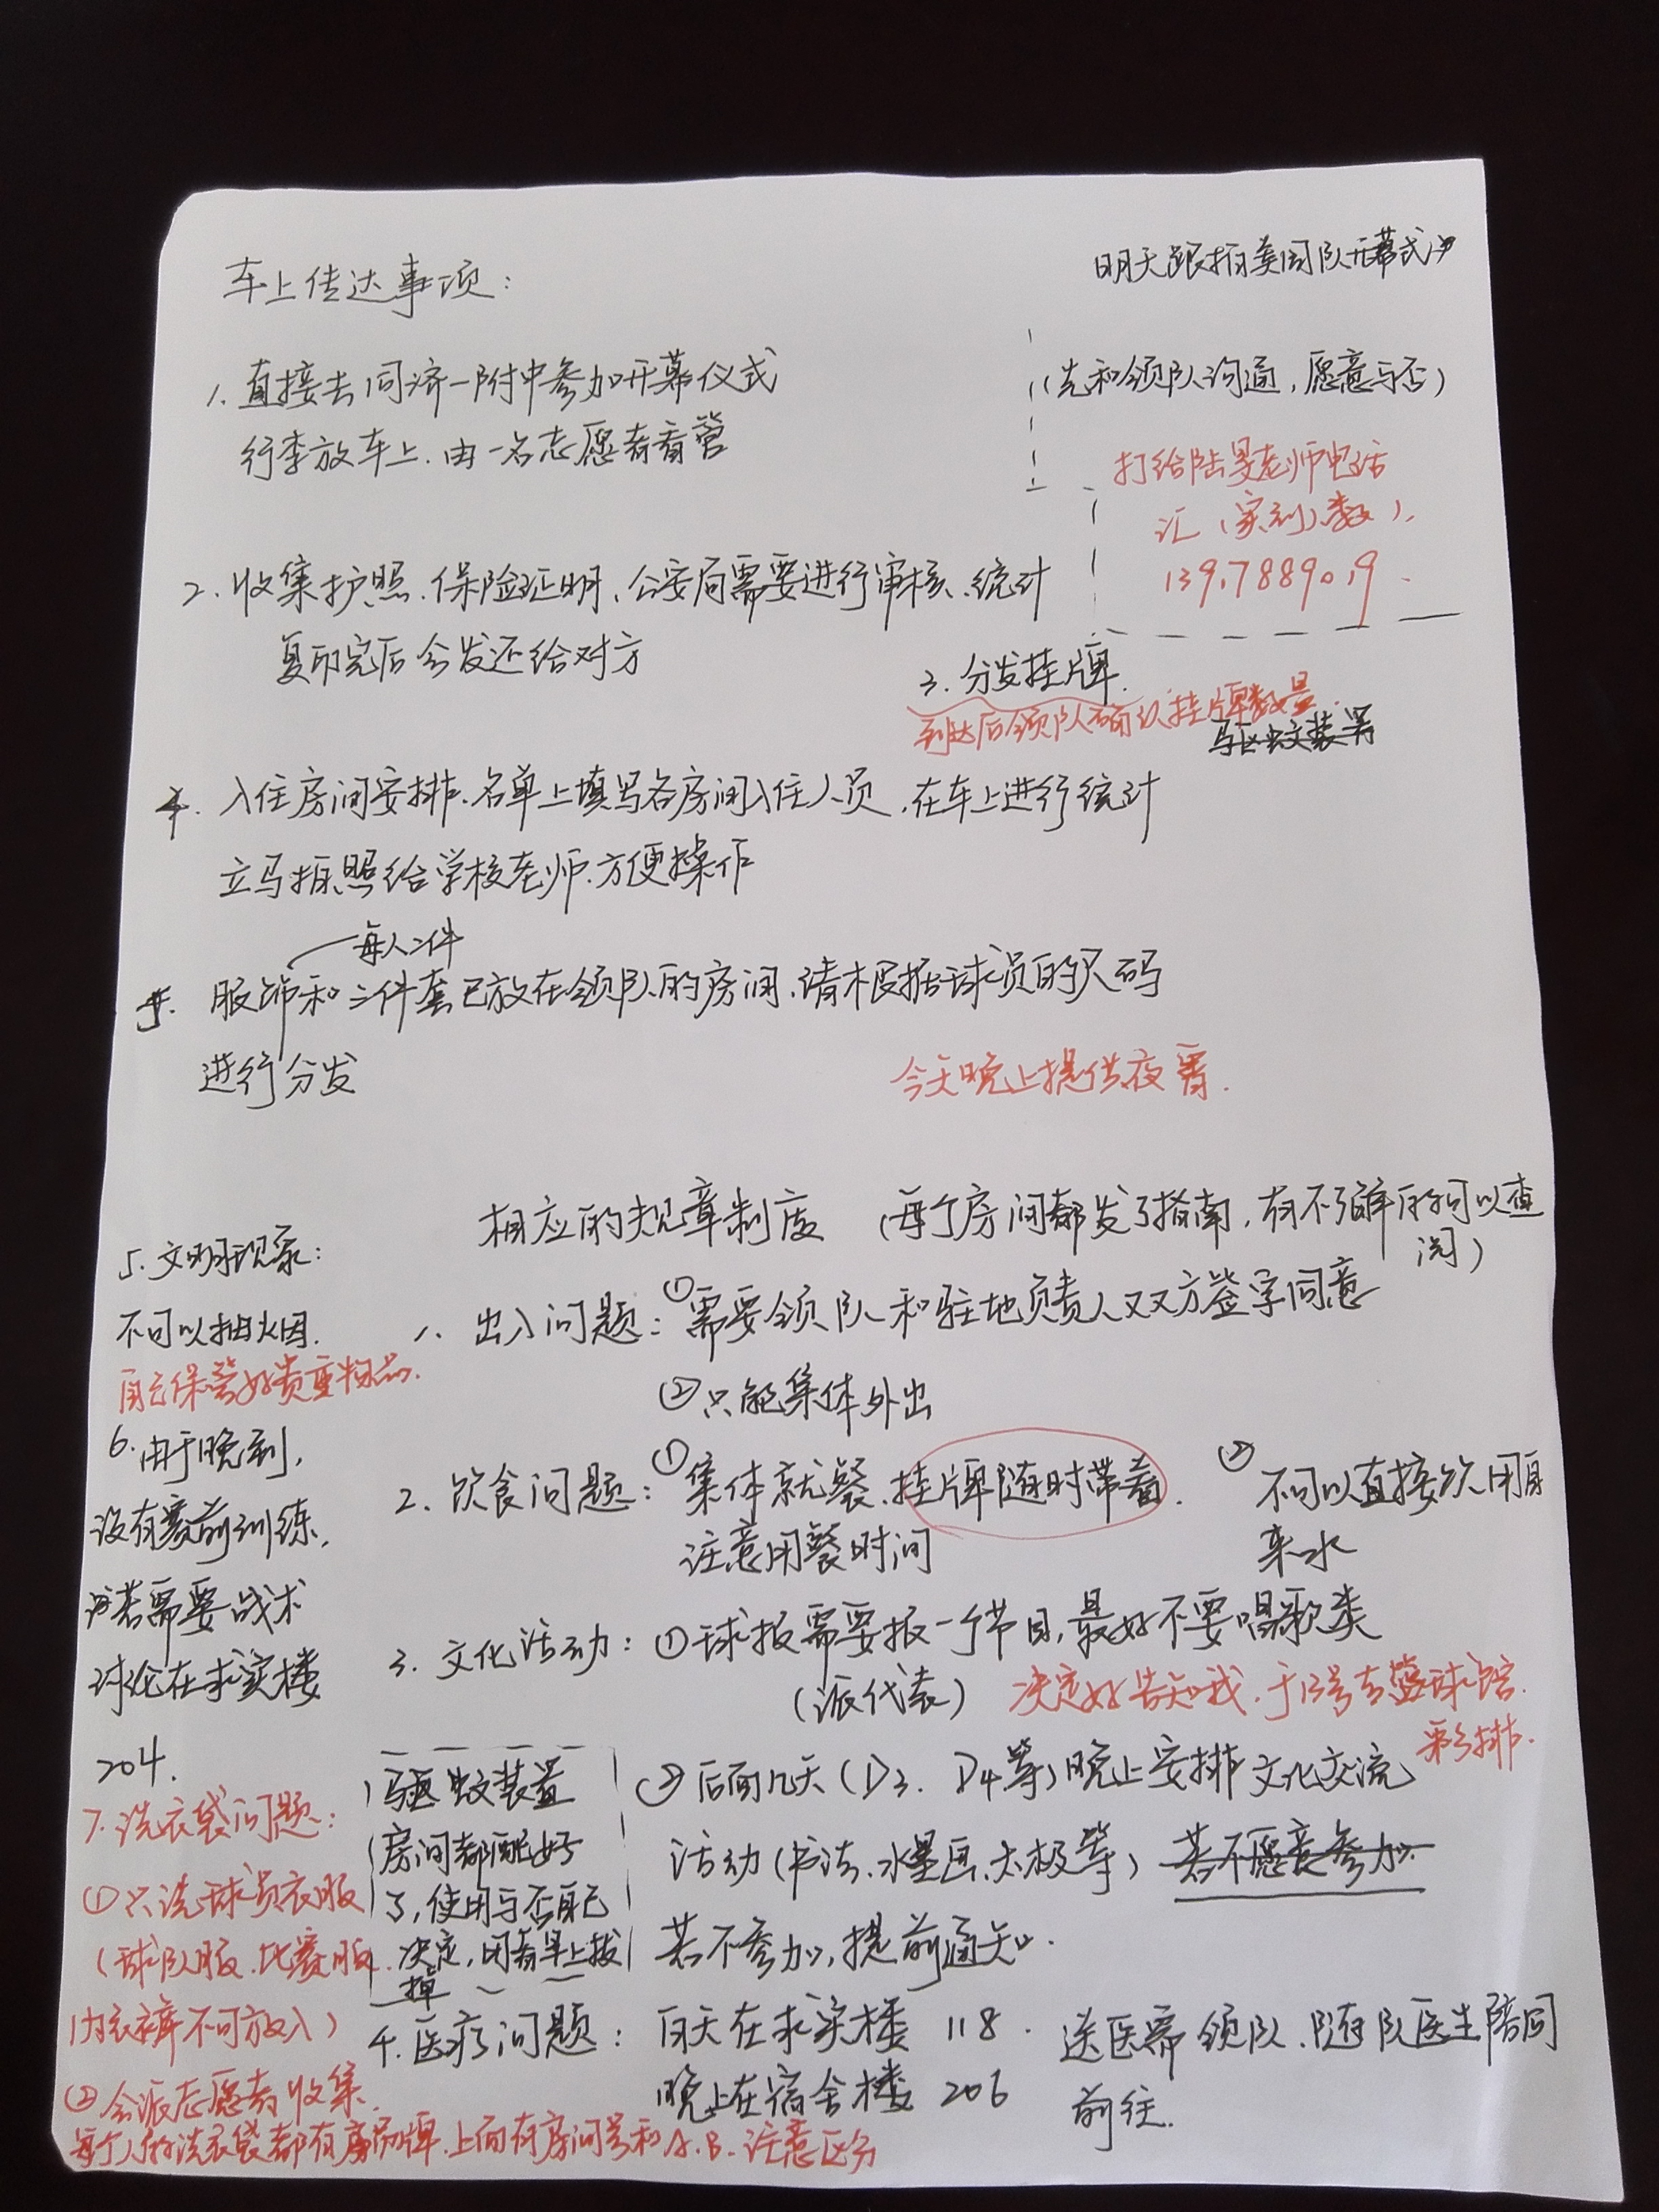 车上传达事项:
明天跟拍类团队开幕式
1. 直接去同济一附中参加开幕仪式
行李放车上.由一名志愿者看管
(先和领队沟通,愿意与否)
打给陆昱老师电话
汇(实到)数),
2. 收集护照.保险证明、公安局需要进行审核、统计
复印完后会发还给对方
3. 分发挂牌.
到达后领队确认挂牌数量.
驱蚊装署
4. 入住房间安排.名单上填写各房间入住人员.在车上进行统计
立马拍照给学校老师.方便操作
每人二件
5. 服饰和三件套已放在领队的房间.请根据球员的尺码
进行分发
今天晚上提供夜宵.
相应的规章制度 (每个房间都发了指南,有不了解的可以查
阅)
1. 出入问题:①需要领队和驻地负责人双方签字同意
②只能集体外出
2. 饮食问题:①集体就餐、挂牌随时带着.
注意用餐时间
②不可以直接饮用自
来水
3. 文化活动:①球报需要报一个节目,最好不要唱歌类
(派代表)
决定好告知我.于13号去篮球馆.
彩排.
②后面几天(D3.D4等)晚上安排文化交流
活动(书法、水墨画、太极等)若不愿意参加
若不参加,提前通知.
4. 医疗问题:白天在求实楼118.
晚上在宿舍楼206
送医需领队、随队医生陪同
前往.
5. 文明现象:
不可以抽火因.
自己保管好贵重物品.
6. 由于晚到,
没有赛前训练,
若需要战术
讨论在求实楼
204.
驱蚊装置
房间都配好
了,使用与否自己
决定,闭着早上拔
掉
7. 洗衣袋问题:
①只洗球员衣服
(球队服.比赛服.
内衣裤不可放入)
②会派志愿者收集.
每个人的洗衣袋都有房间牌.上面有房间号和A.B.注意区分